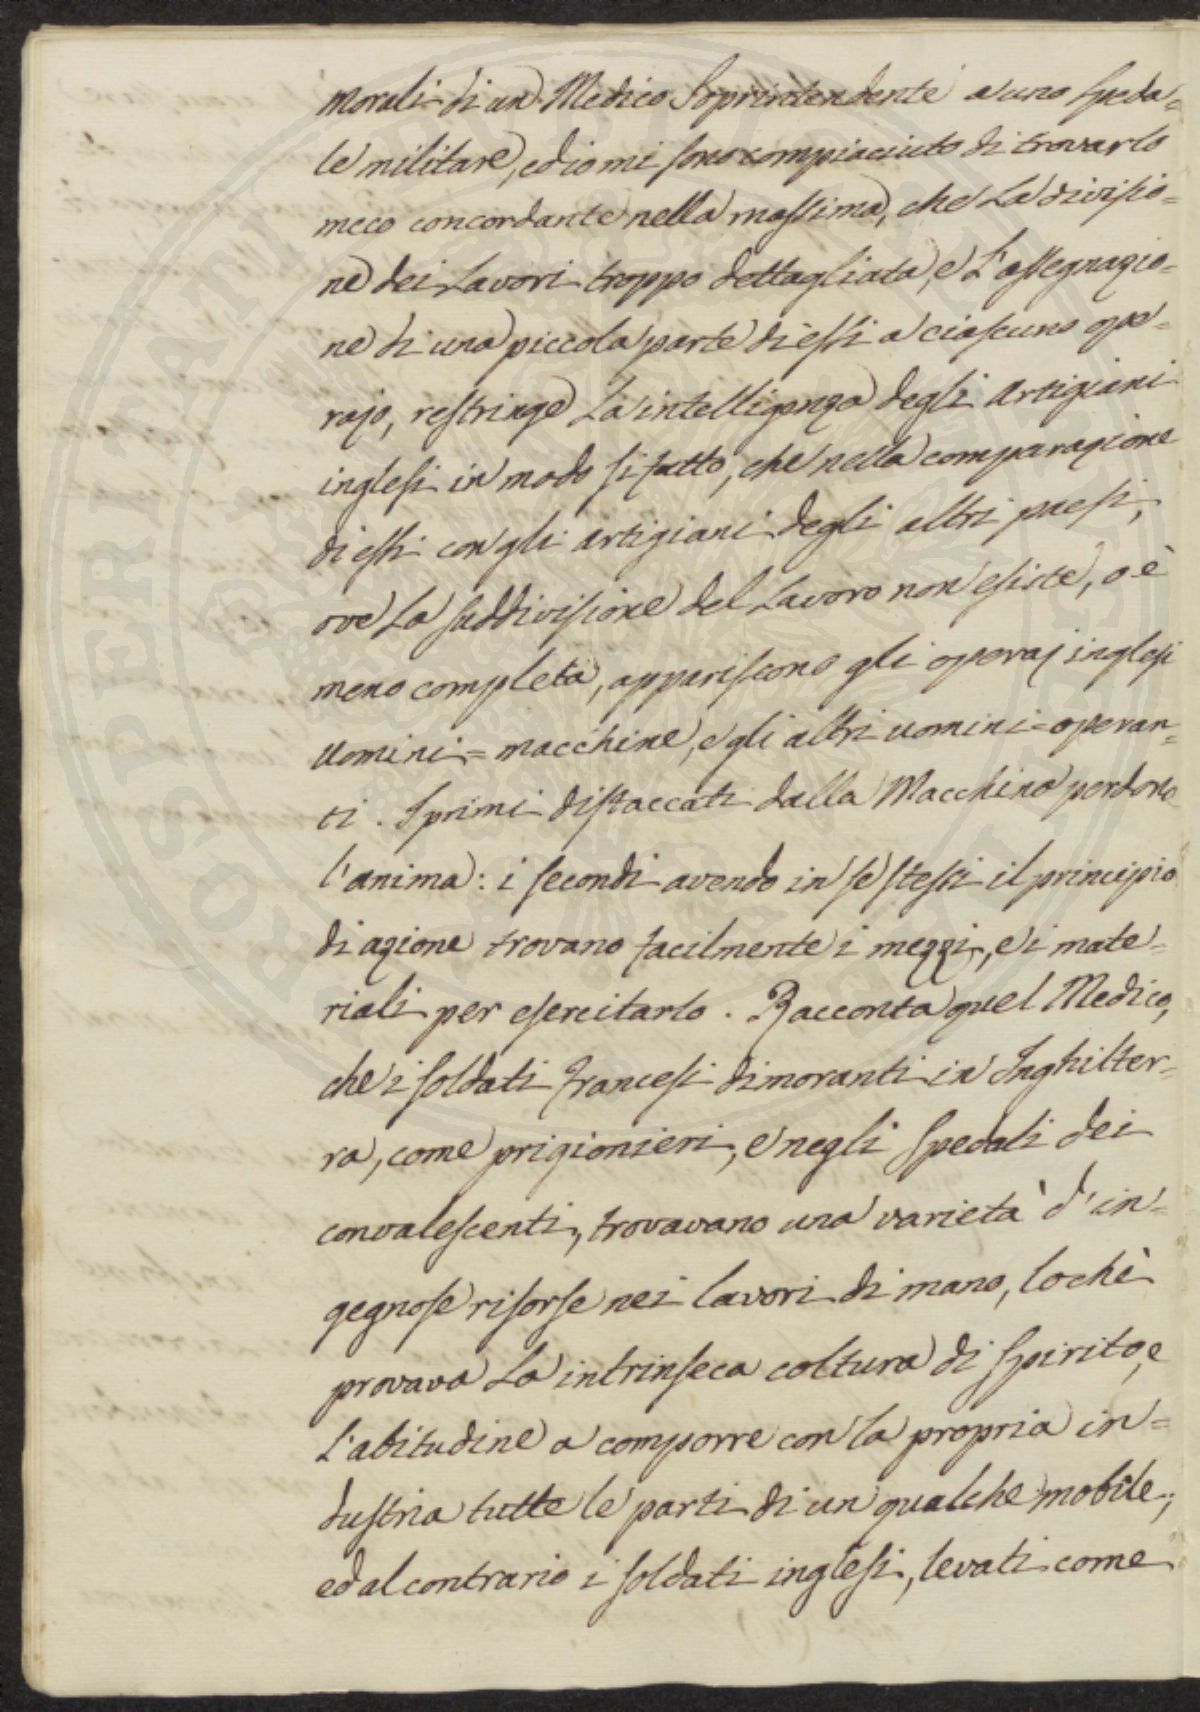 morali di un Medico Soprintendente a uno Speda=
le militare, ed io mi sono compiaciuto di trovarlo
meco concordante nella massima, che La divisio=
ne dei Lavori troppo dettagliata, e L'assegnazio=
ne di una piccola parte di essi a ciascuno ope=
rajo, restringe La intelligenza degli Artigiani
inglesi in modo sì fatto, che nella comparazione
di essi con gli artigiani degli altri paesi,
ove La suddivisione del Lavoro non esiste, o è
meno completa, appariscono gli operaj inglesi
Uomini = macchine, e gli altri uomini = operan=
ti. I primi distaccati dalla Macchina perdono
l'anima: i secondi avendo in se stessi il principio
di azione trovano facilmente i mezzi, e i mate=
riali per esercitarlo. Racconta quel Medico,
che i soldati francesi dimoranti in Inghilter=
ra, come prigionieri, e negli Spedali dei
convalescenti, trovavano una varietà d'in=
gegnose risorse nei lavori di mano, lochè
provava La intrinseca coltura di Spirito, e
L'abitudine a comporre con la propria in=
dustria tutte le parti di un qualche mobile;
ed al contrario i soldati inglesi, levati come
PROSPERITATI PUBLICAE